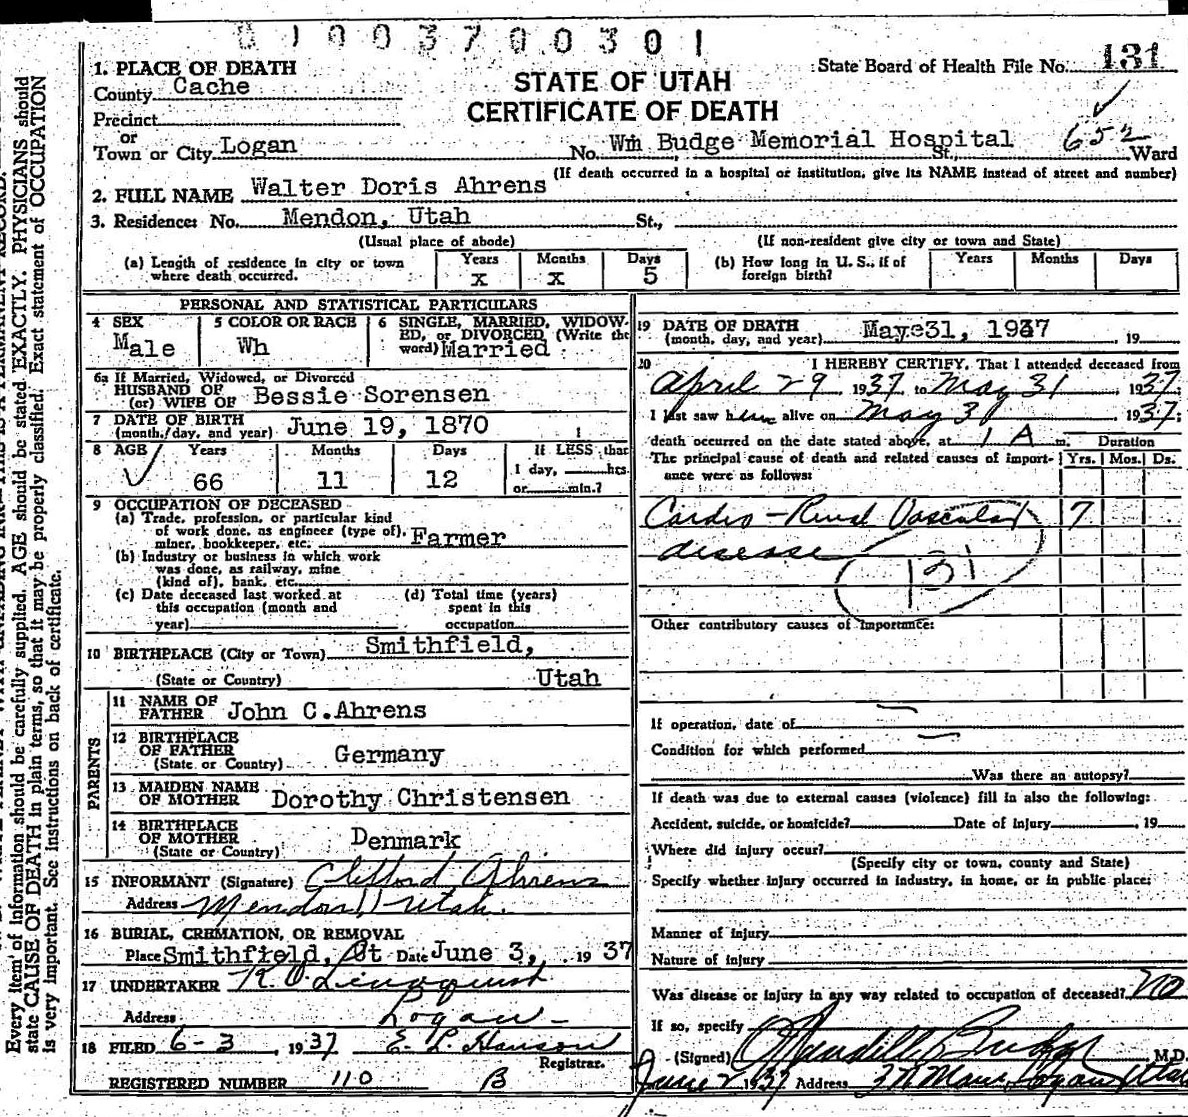 01003700301
1. PLACE OF DEATH
STATE OF UTAH
CERTIFICATE OF DEATH
State Board of Health File No. 131
County Cache
652
Precinct
or
Town or City Logan No. Wm Budge Memorial Hospital St., Ward
(If death occurred in a hospital or institution, give its NAME instead of street and number)
2. FULL NAME Walter Doris Ahrens
3. Residence: No. Mendon, Utah St.,
(Usual place of abode) (If non-resident give city or town and State)
(a) Length of residence in city or town where death occurred. Years x Months x Days 5
(b) How long in U. S., if of foreign birth? Years Months Days
PERSONAL AND STATISTICAL PARTICULARS
4 SEX Male
5 COLOR OR RACE Wh
6 SINGLE, MARRIED, WIDOWED, or DIVORCED (Write the word) Married
6a If Married, Widowed, or Divorced
HUSBAND OF
(or) WIFE OF Bessie Sorensen
7 DATE OF BIRTH
(month, day, and year) June 19, 1870
8 AGE Years Months Days If LESS than
66 11 12 1 day, hrs.
or min.?
9 OCCUPATION OF DECEASED
(a) Trade, profession, or particular kind
of work done, as engineer (type of),
miner, bookkeeper, etc. Farmer
(b) Industry or business in which work
was done, as railway, mine
(kind of), bank, etc.
(c) Date deceased last worked at
this occupation (month and
year)
(d) Total time (years)
spent in this
occupation
10 BIRTHPLACE (City or Town) Smithfield,
(State or Country) Utah
PARENTS
11 NAME OF
FATHER John C.Ahrens
12 BIRTHPLACE
OF FATHER
(State or Country) Germany
13 MAIDEN NAME
OF MOTHER Dorothy Christensen
14 BIRTHPLACE
OF MOTHER
(State or Country) Denmark
15 INFORMANT (Signature) Clifford Ahrens
Address Mendon, Utah.
16 BURIAL, CREMATION, OR REMOVAL
Place Smithfield, Ut Date June 3, 1937
17 UNDERTAKER K. O. Lindquist
Address Logan
18 FILED 6-3, 1937 E. L. Hanson
Registrar.
REGISTERED NUMBER 110 B
19 DATE OF DEATH
(month, day, and year) May 31, 1937 , 19
20 I HEREBY CERTIFY, That I attended deceased from
April 29 1937 to May 31 1937
I last saw him alive on May 31, 1937;
death occurred on the date stated above, at 1 A m. Duration
The principal cause of death and related causes of import- Yrs. Mos. Ds.
ance were as follows:
Cardio-Renal Vascular 7
disease
131
Other contributory causes of importance:
If operation, date of
Condition for which performed
Was there an autopsy?
If death was due to external causes (violence) fill in also the following:
Accident, suicide, or homicide? Date of injury 19
Where did injury occur?
(Specify city or town, county and State)
Specify whether injury occurred in industry, in home, or in public place:
Manner of injury
Nature of injury
Was disease or injury in any way related to occupation of deceased? no
If so, specify
(Signed) Budge M.D.
June 2 1937 Address Logan Utah
Every item of information should be carefully supplied. AGE should be stated EXACTLY. PHYSICIANS should
state CAUSE OF DEATH in plain terms, so that it may be properly classified. Exact statement of OCCUPATION
is very important. See instructions on back of certificate.